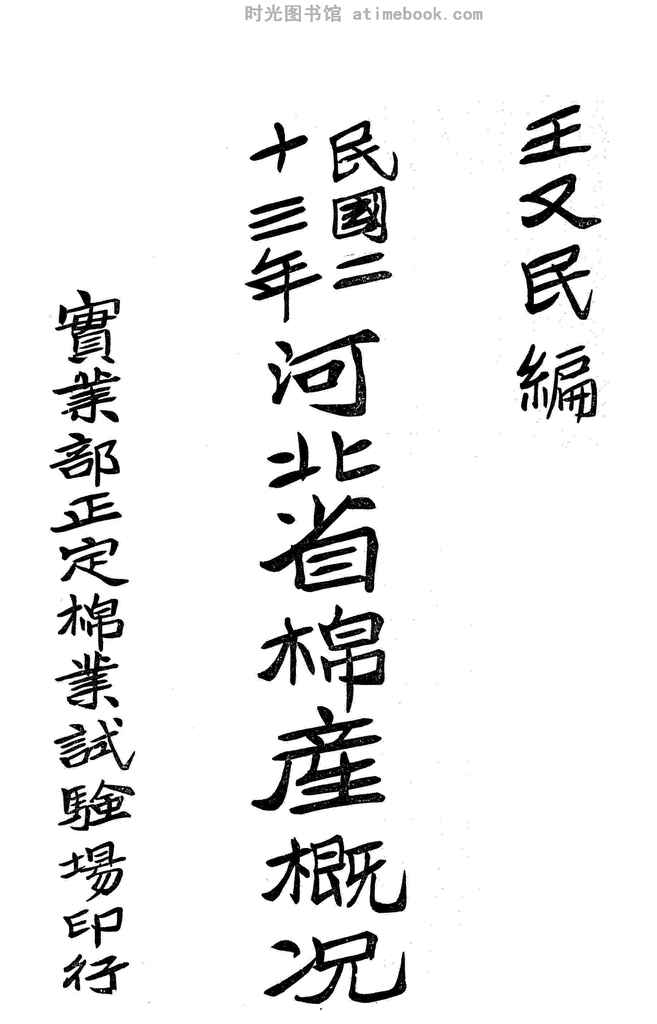 时光图书馆 atimebook.com
王又民編
民國二
十三年
河北省棉産概况
實業部正定棉業試験場印行